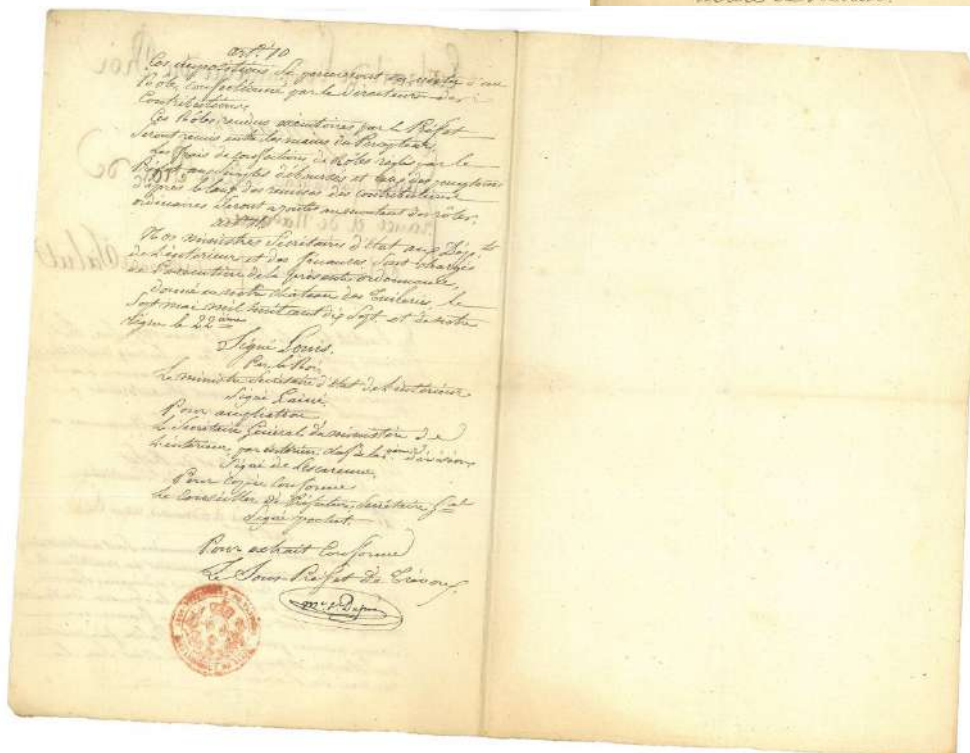 art. 10
Ces impositions se percevront en vertu d'un
Rôle confectionné par le Directeur des
Contributions.
Ces Rôles rendus exécutoires par le Préfet
seront remis entre les mains du Percepteur.
Les frais de confections de Rôles réglés par le
Préfet aux simples déboursés et ceux des
d'après le taux des remises des contributions
ordinaires seront ajoutés au montant des rôles.
art. 11
Nos ministres Secrétaires d'état aux Dép.ts
de l'intérieur et des finances sont chargés
de l'exécution de la présente ordonnance,
donné en notre château des Tuileries, le
Sept mai mil huit cent dix Sept. et de notre
règne le 22ème
Signé Louis.
Par le Roi,
Le ministre Secrétaire d'état de l'intérieur
Signé Lainé
Pour ampliation
Le Secrétaire Général du ministère de
l'intérieur, par intérim, chef de la division
Signé de Lescarenne,
Pour Copie Conforme
Le Conseiller de Préfecture, Secrétaire Gal
Signé pochet.
Pour extrait Conforme
Le Sous-Préfet De Trévoux,